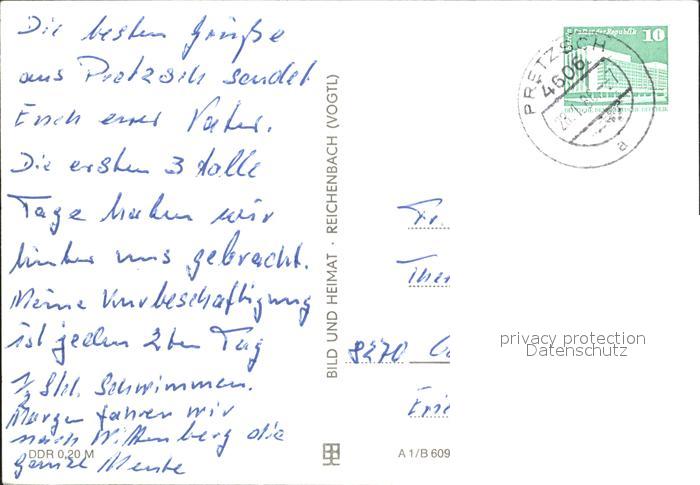 Die besten Grüße
aus Pretzsch sendet
Euch euer Vater.
Die ersten 3 tolle
Tage haben wir
hinter uns gebracht.
Meine Kurbeschäftigung
ist jeden 2ten Tag
½ Std. Schwimmen.
Morgen fahren wir
nach Wittenberg die
ganze Meute
DDR 0,20 M
BILD UND HEIMAT · REICHENBACH (VOGTL)
A 1/B 609
der Republik 10
PRETZSCH
4606
a
Fr.
8270
privacy protection
Datenschutz